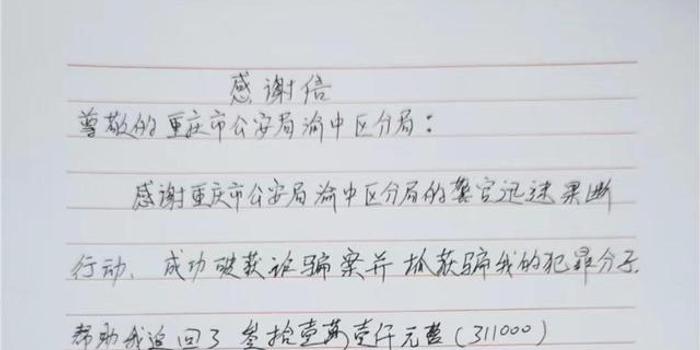 感谢信
尊敬的重庆市公安局渝中区分局：
感谢重庆市公安局渝中区分局的警官迅速果断
行动、成功破获诈骗案并抓获骗我的犯罪分子.
帮助我追回了叁拾壹萬壹仟元整(311000)